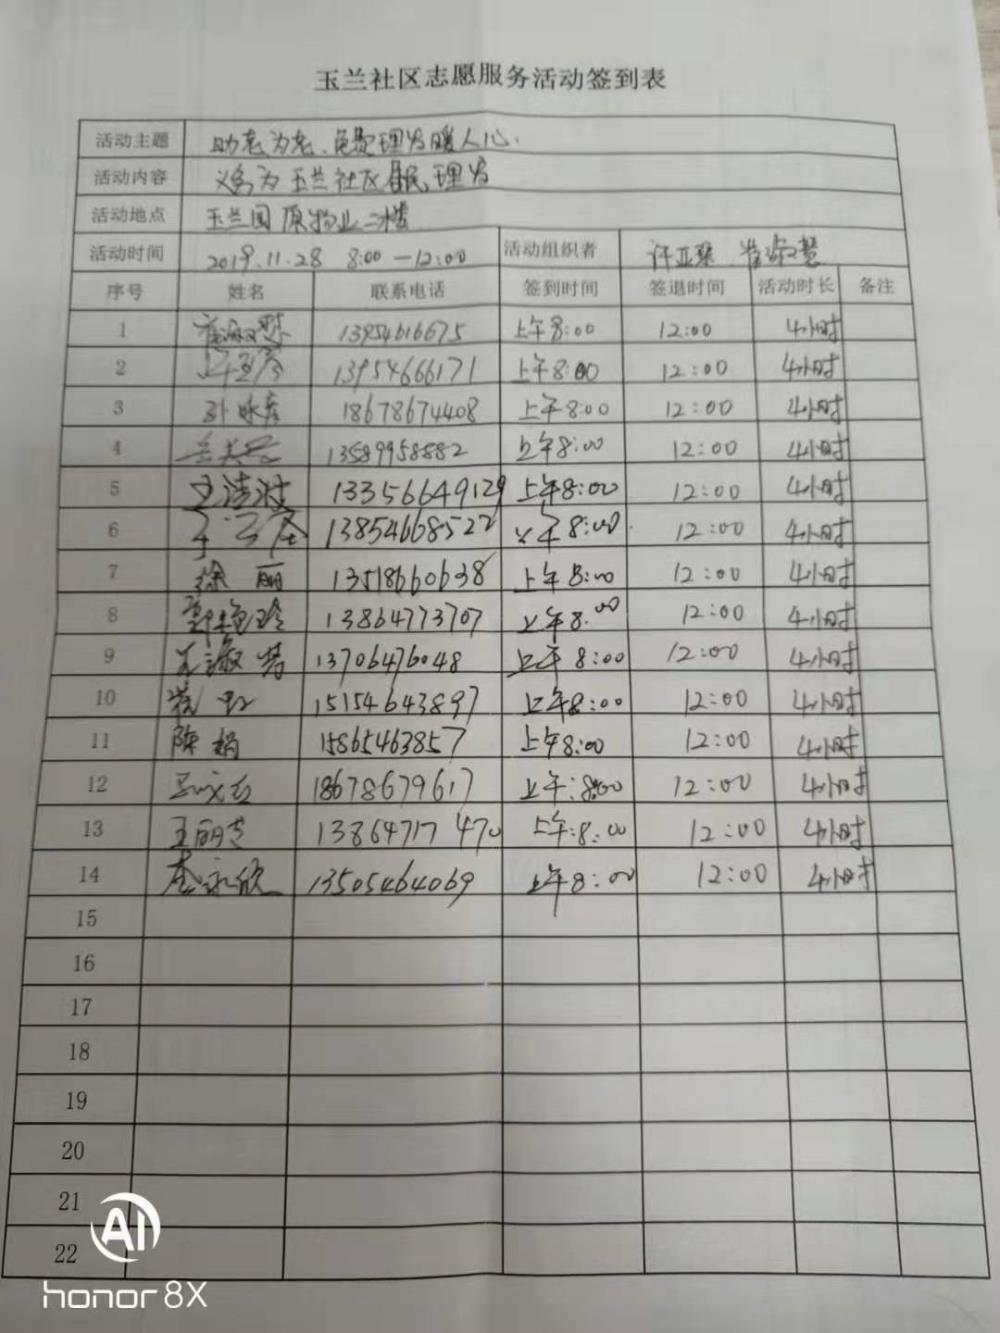 玉兰社区志愿服务活动签到表
活动主题 助老为老、免费理发暖人心.
活动内容 义务为玉兰社区居民理发
活动地点 玉兰园原物业二楼
活动时间 2019.11.28 8:00—12:00 活动组织者
序号 姓名 联系电话 签到时间 签退时间 活动时长 备注
1 13954616675 上午8:00 12:00 4小时
2 13954666171 上午8:00 12:00 4小时
3 18678674408 上午8:00 12:00 4小时
4 13589958882 上午8:00 12:00 4小时
5 13356649129 上午8:00 12:00 4小时
6 13854668522 上午8:00. 12:00 4小时
7 徐丽 13518660638 上午8:00 12:00 4小时
8 13864773707 上午8:00 12:00 4小时
9 13706476048 上午8:00 12:00 4小时
10 15154643897 上午8:00 12:00 4小时
11 陈娟 15865463857 上午8:00 12:00 4小时
12 18678679617 上午:8:00 12:00 4小时
13 王丽 13864717470 上午:8:00 12:00 4小时
14 李永欣 13505464069 上午8:00 12:00 4小时
15
16
17
18
19
20
21
22
AI
honor 8X